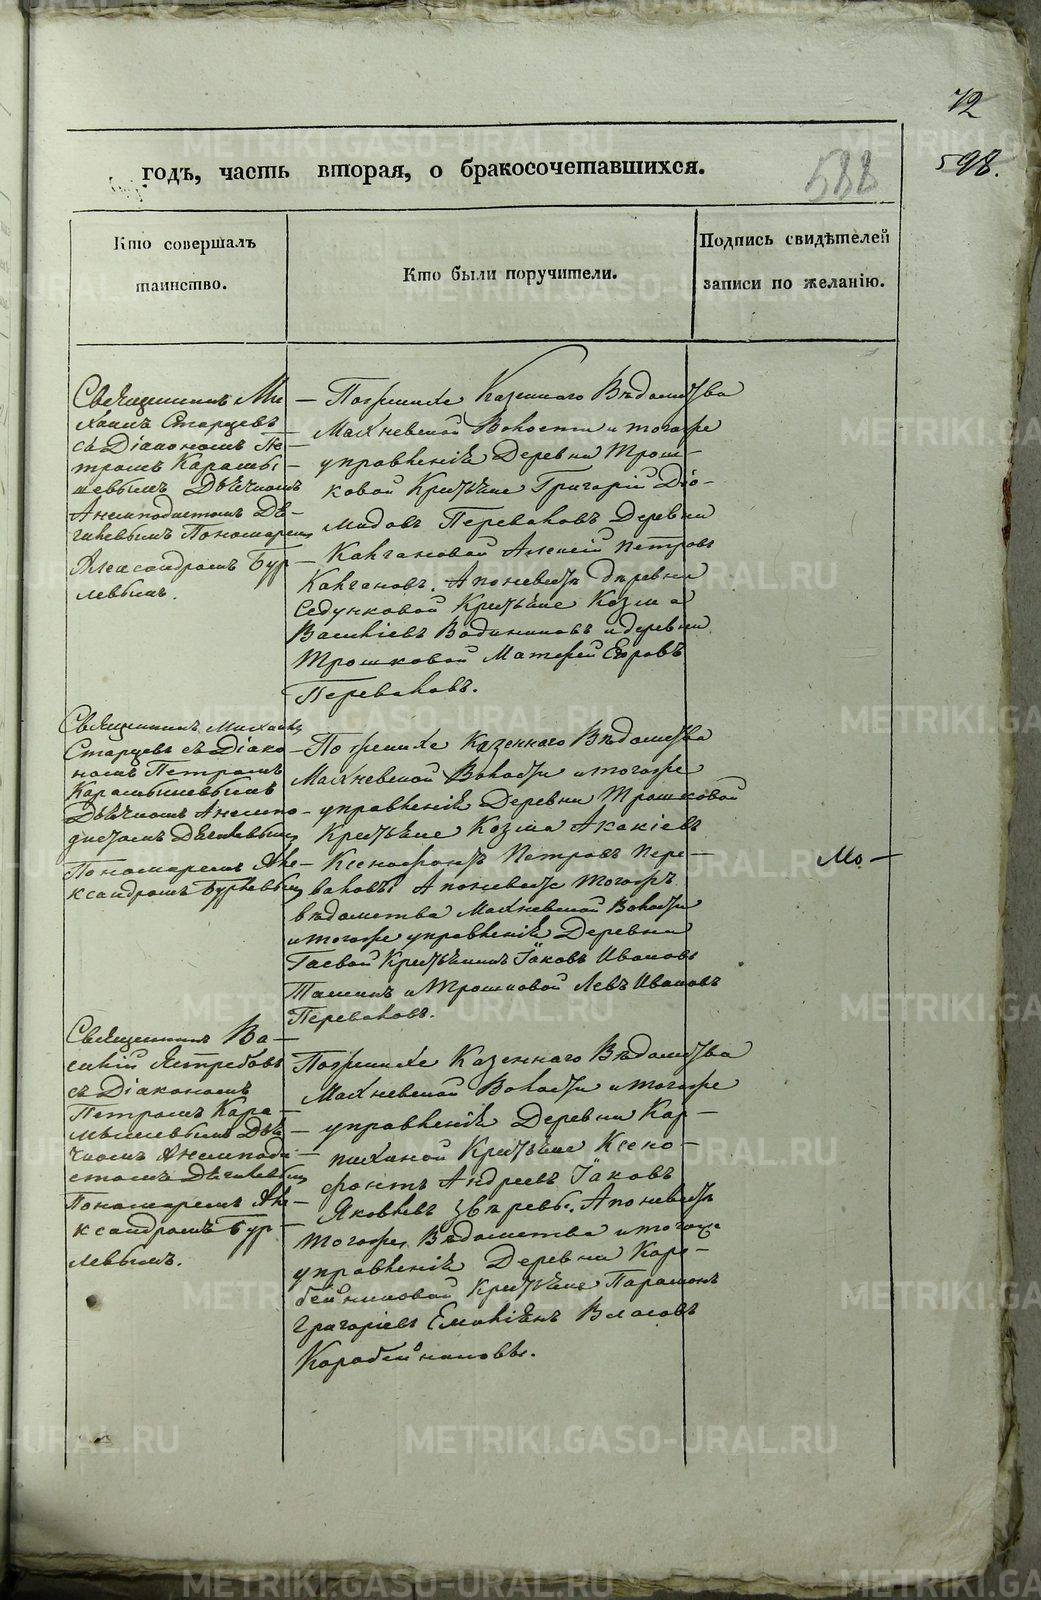 72
598.
588
годъ, часть вторая, о бракосочетавшихся.
Кто совершалъ
таинство.
Кто были поручители.
Подпись свидѣтелей
записи по желанію.
Священникъ Ми-
хаилъ Старцевъ
съ Діакономъ Пе-
тромъ Карамы-
шевымъ Дьячкомъ
Анемподистомъ Дя-
гилевымъ Пономаремъ
Александромъ Бур-
левымъ.
По женихе Казеннаго Вѣдомства
Махневской Волости и тогоже
управленія Деревни Трош-
ковой Крестьяне Григорій Діо-
мидовъ Переваловъ Деревни
Калгановой Алексій Петровъ
Калгановъ. А по невестѣ деревни
Седунковой Крестьяне Козма
Василіевъ и деревни
Трошковой Матфей Егоровъ
Переваловъ.
Священникъ Михаилъ
Старцевъ съ Діако-
номъ Петромъ
Карамышевымъ
Дьячкомъ Анемпо-
дистомъ Дягилевымъ
Пономаремъ Але-
ксандромъ Бурлевымъ
По женихе Казеннаго Вѣдомства
Махневской Волости и тогоже
управленія Деревни Трошковой
Крестьяне Козма Акакіевъ
Ксенофонтъ Петровъ Пере-
валовы. А по невесте тогожъ
вѣдомства Махневской Волости
и тогоже управленія Деревни
Гаевой Крестьянинъ Іаковъ Ивановъ
и Трошковой Левъ Ивановъ
Переваловъ.
Мо-
Священникъ Ва-
силій Ястребовъ
съ Діакономъ
Петромъ Кара-
мышевымъ Дья-
чкомъ Анемподи-
стомъ Дягилевымъ
Пономаремъ Але-
ксандромъ Бур-
левымъ.
По женихе Казеннаго Вѣдомства
Махневской Волости и тогоже
управленія Деревни Кар-
пихиной Крестьяне Ксено-
фонтъ Андреевъ Іаковъ
Яковлевъ Звѣревы. А по невестѣ
тогоже Вѣдомства и тогоже
управленія Деревни Коро-
бейниковой Крестьяне Парамонъ
Григоріевъ Емеліянъ Власовъ
Коробейниковы.
METRIKI.GASO-URAL.RU